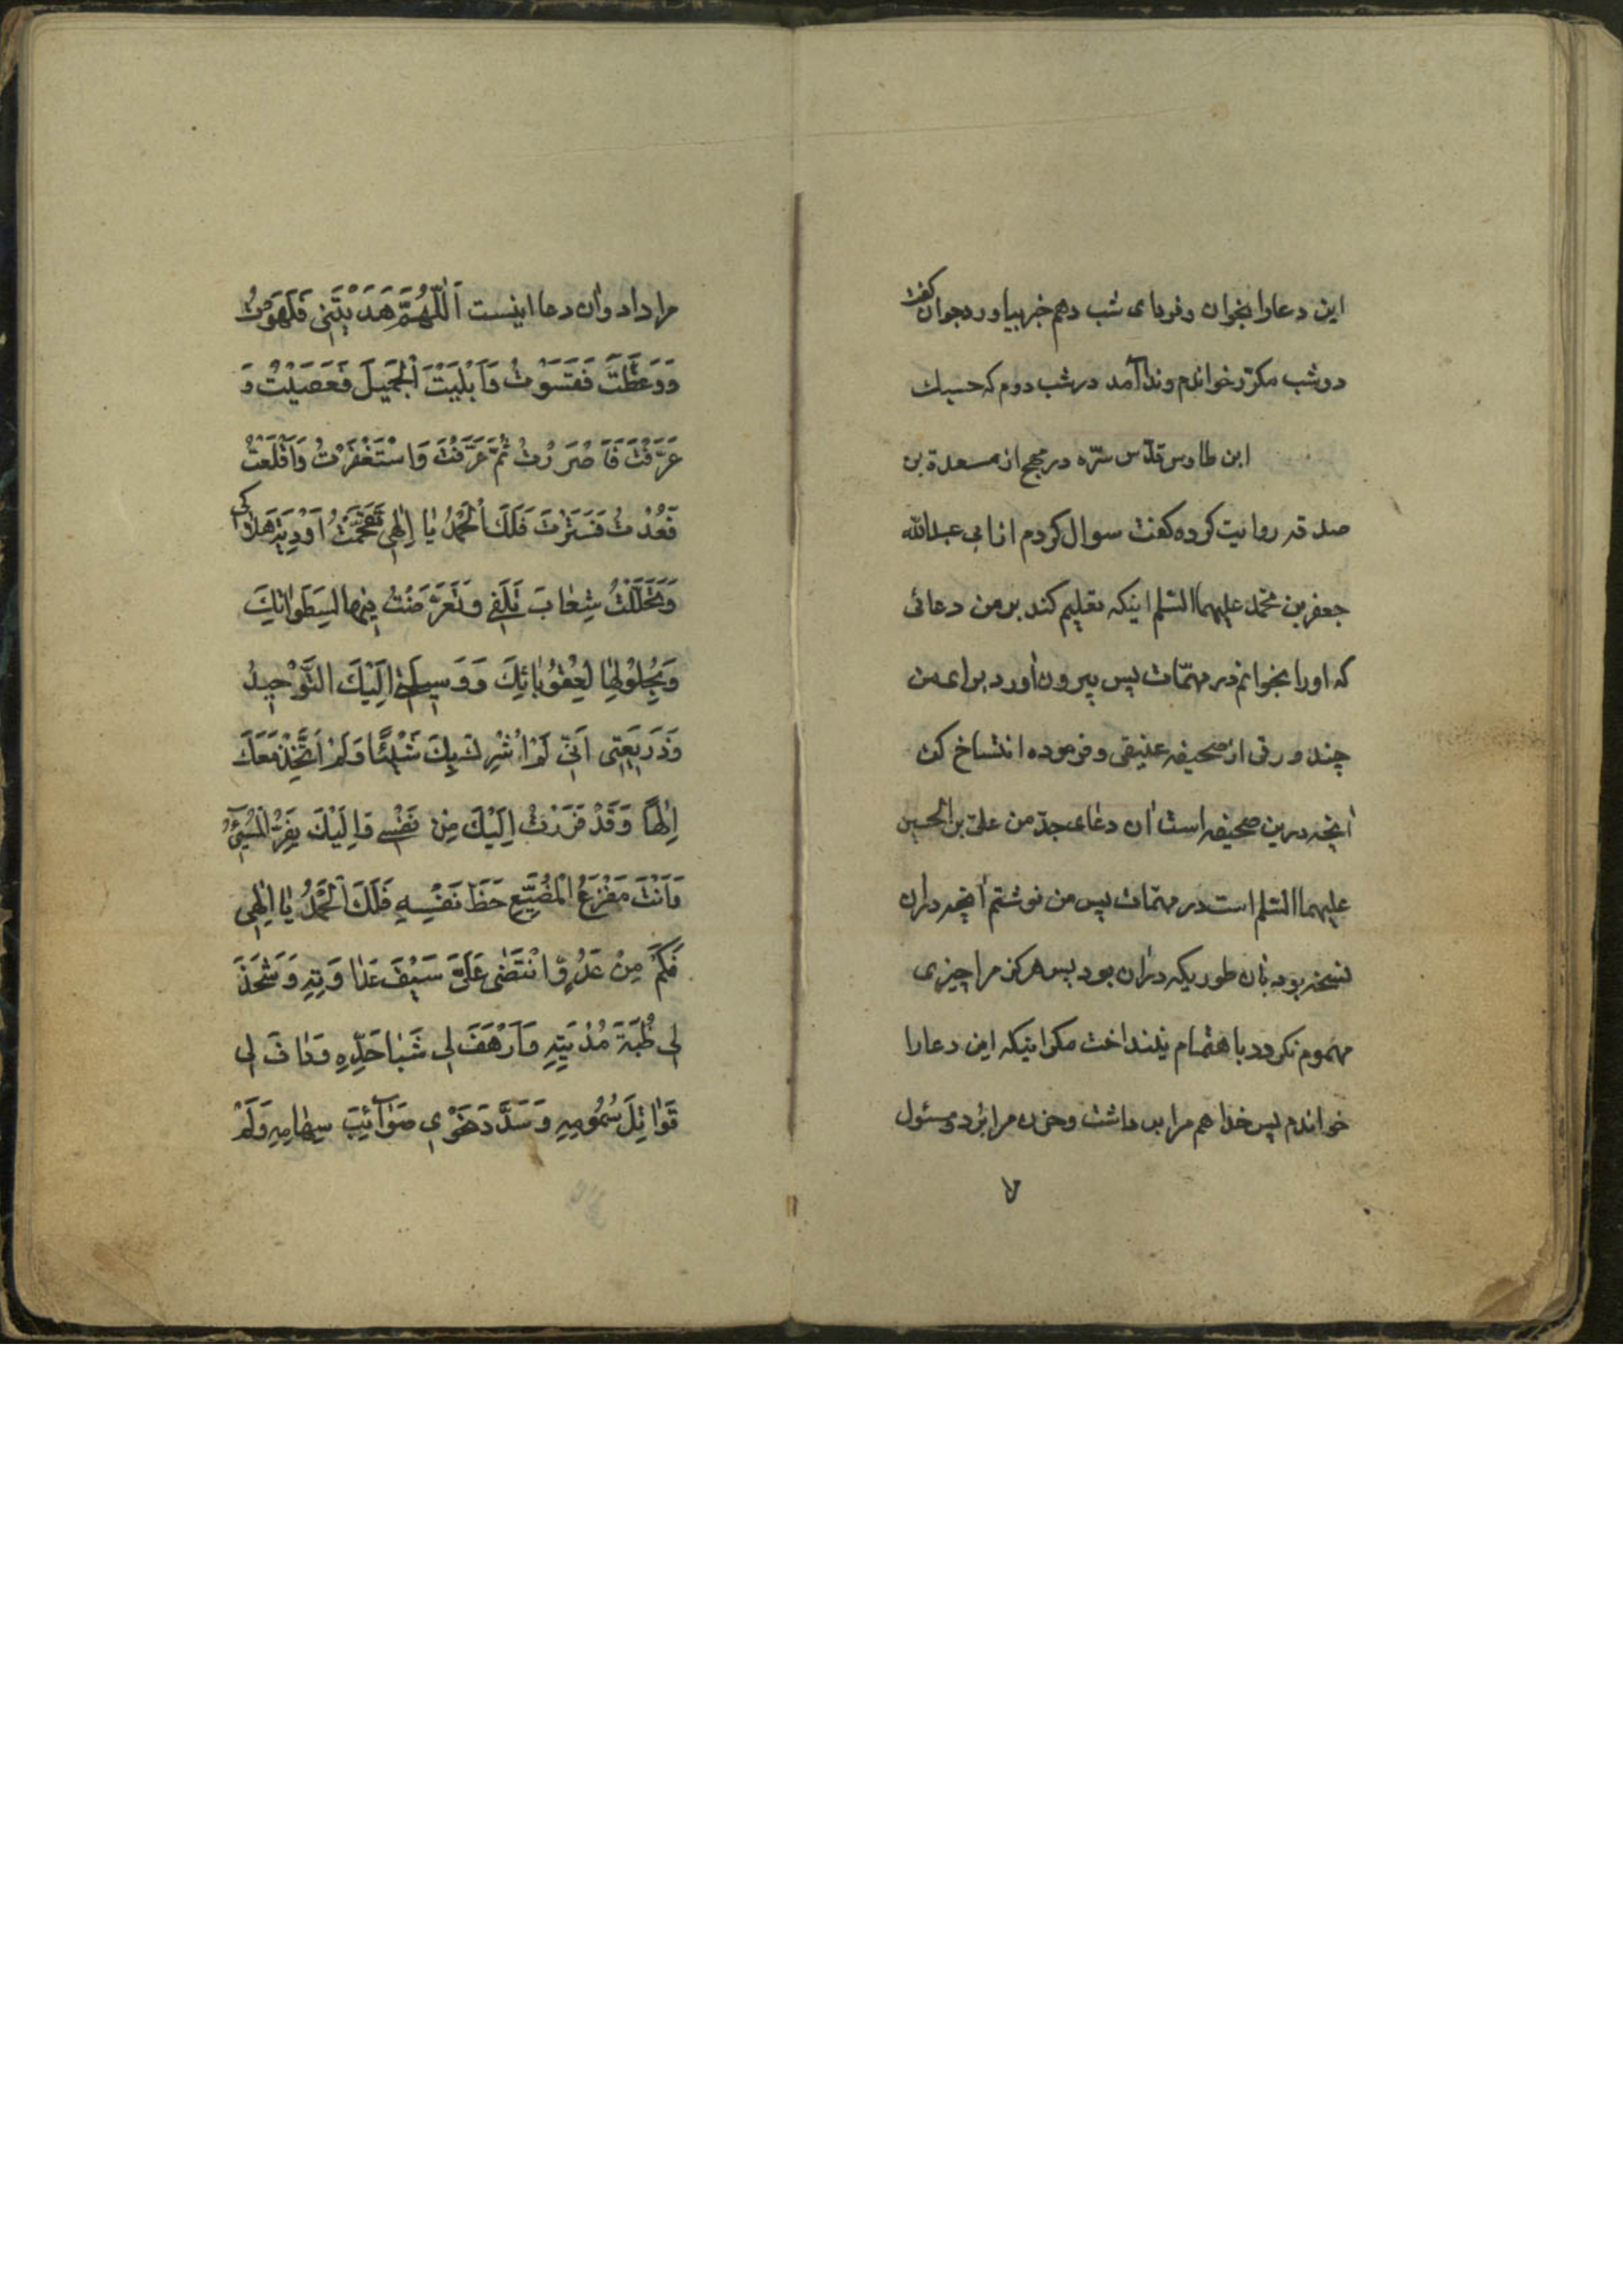 این دعا را بخوان و فردای شب دهم خبر بیاور جوان گفت
دو شب مکرّر خواندم و ندا آمد در شب دوم که حسبك
ابن طاوس قدّس سرّه در مهج از مسعدة بن
صدقه روایت کرده گفت سوال کردم از ابی عبدالله
جعفر بن محمّد علیهما السّلم اینکه تعلیم کند بر من دعائی
که او را بخوانم در مهمّات پس بیرون آورد برای من
چند ورقی از صحیفه عتیقی و فرموده انتساخ کن
آنچه در این صحیفه است آن دعای جدّ من علیّ بن الحسین
علیهما السّلم است در مهمّات پس من نوشتم آنچه در آن
نسخه بود بآن طوریکه در آن بود پس هرکز مرا چیزی
مهموم نکرد و باهتمام نینداخت مکر اینکه این دعا را
خواندم پس خدا هم مرا برداشت و حزن مرا بُرد و مسئول
مرا داد و آن دعا اینست اَللّهُمَّ هَدَيْتَنِي فَلَهَوْتُ
وَوَعَظْتَ فَقَسَوْتُ وَاَبْلَيْتَ الْجَمِيلَ فَعَصَيْتُ وَ
عَرَّفْتَ فَاَصْرَرْتُ ثُمَّ عَرَّفْتَ وَاسْتَغْفَرْتُ وَاَقْلَعْتُ
فَعُدْتُ فَسَتَرْتَ فَلَكَ الْحَمْدُ يَا اِلٰهِي تَقَحَّمْتُ اَوْدِيَةَ هَلَاكِي
وَتَخَلَّلْتُ شِعَابَ تَلَفِي وَتَعَرَّضْتُ فِيهَا لِسَطَوَاتِكَ
وَبِحُلُولِهَا لِعُقُوبَاتِكَ وَوَسِيلَتِي اِلَيْكَ التَّوْحِيدُ
وَذَرِيعَتِي اَنِّي لَمْ اُشْرِكْ بِكَ شَيْئًا وَلَمْ اَتَّخِذْ مَعَكَ
اِلٰهًا وَقَدْ فَرَرْتُ اِلَيْكَ مِنْ نَفْسِي وَاِلَيْكَ يَفِرُّ الْمُسِيءُ
وَاَنْتَ مَفْزَعُ الْمُضَيِّعِ حَظَّ نَفْسِهِ فَلَكَ الْحَمْدُ يَا اِلٰهِي
فَكَمْ مِنْ عَدُوٍّ انْتَضٰى عَلَيَّ سَيْفَ عَدَاوَتِهِ وَشَحَذَ
لِي ظُبَةَ مُدْيَتِهِ وَاَرْهَفَ لِي شَبَا حَدِّهِ وَدَافَ لِي
قَوَاتِلَ سُمُومِهِ وَسَدَّدَ نَحْوِي صَوَائِبَ سِهَامِهِ وَلَمْ